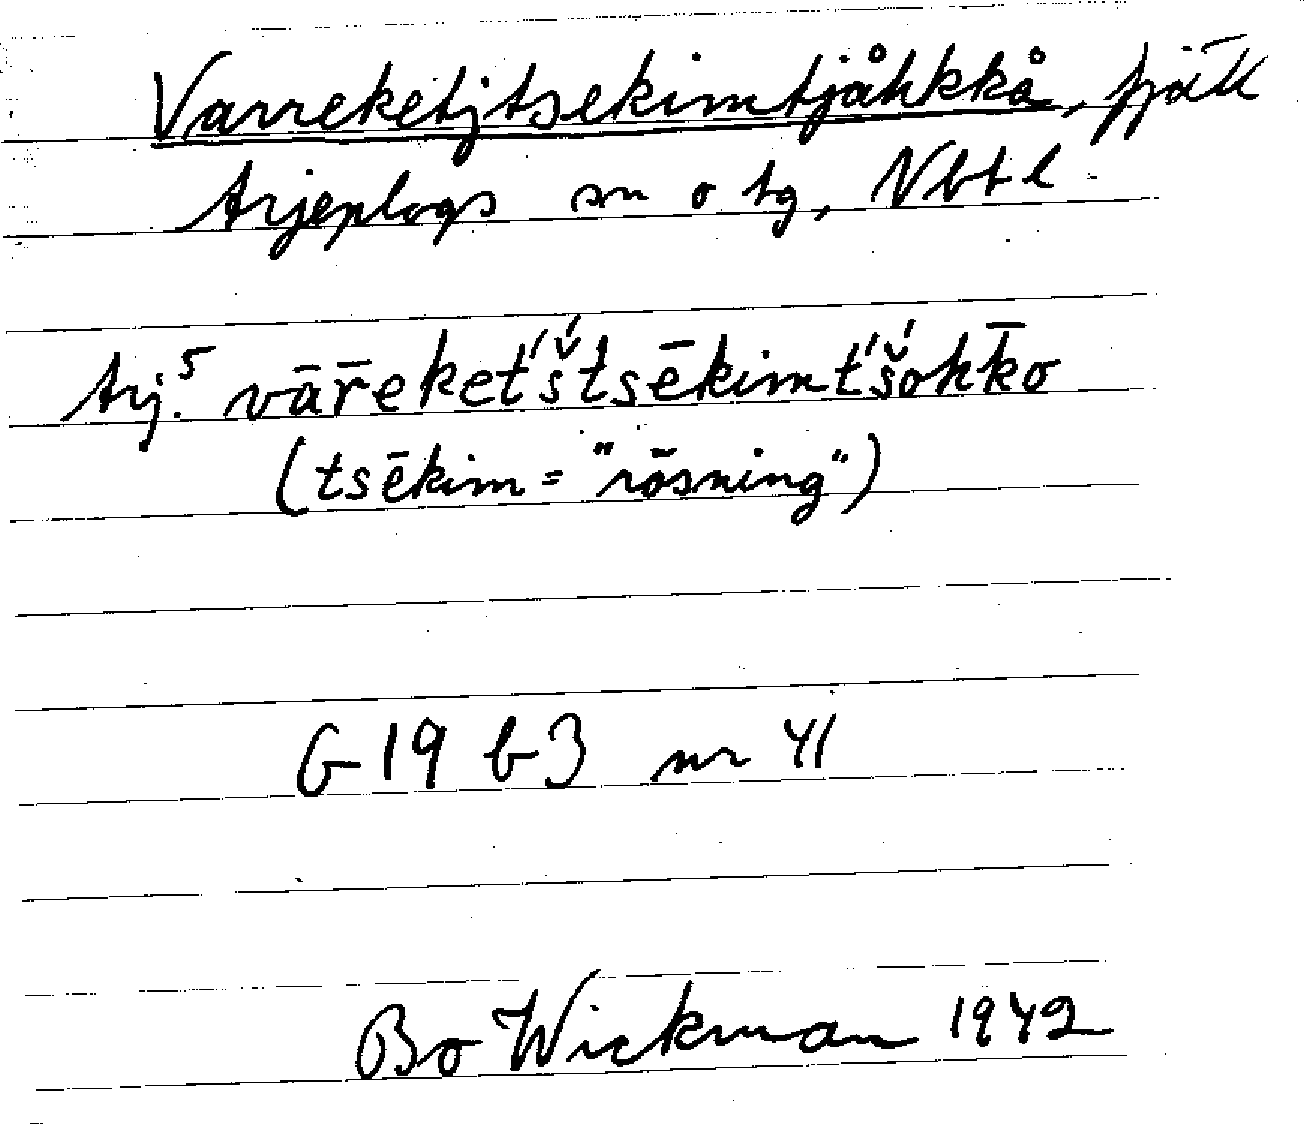 Varreketjtsekimtjåhkkå, fjäll
Arjeplogs sn o tg, Nbtl
Arj.⁵ vār̄eket́š́tsēkimt́š́ohk̄o
(tsēkim = "rösning")
G 19 b 3 nr 41
Bo Wickman 1942